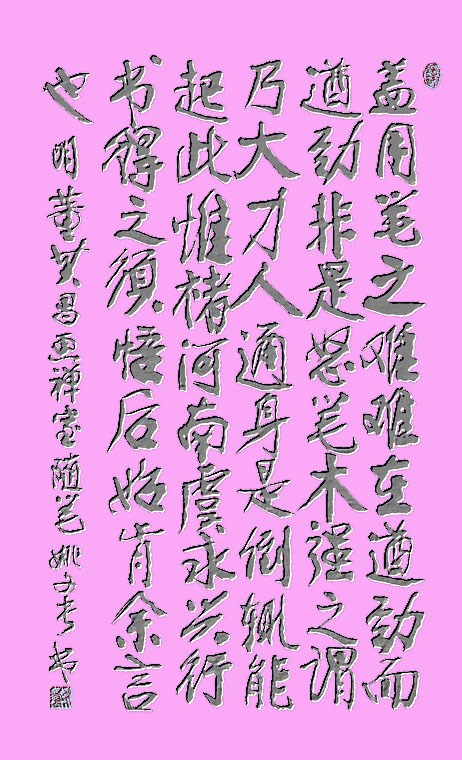 盖用笔之难难在遒劲而
遒劲非是怒笔木强之谓
乃大才人通身是倒辄能
起此惟褚河南虞永兴行
书得之须悟后始肯余言
也 明董其昌画禅室随笔 姚书